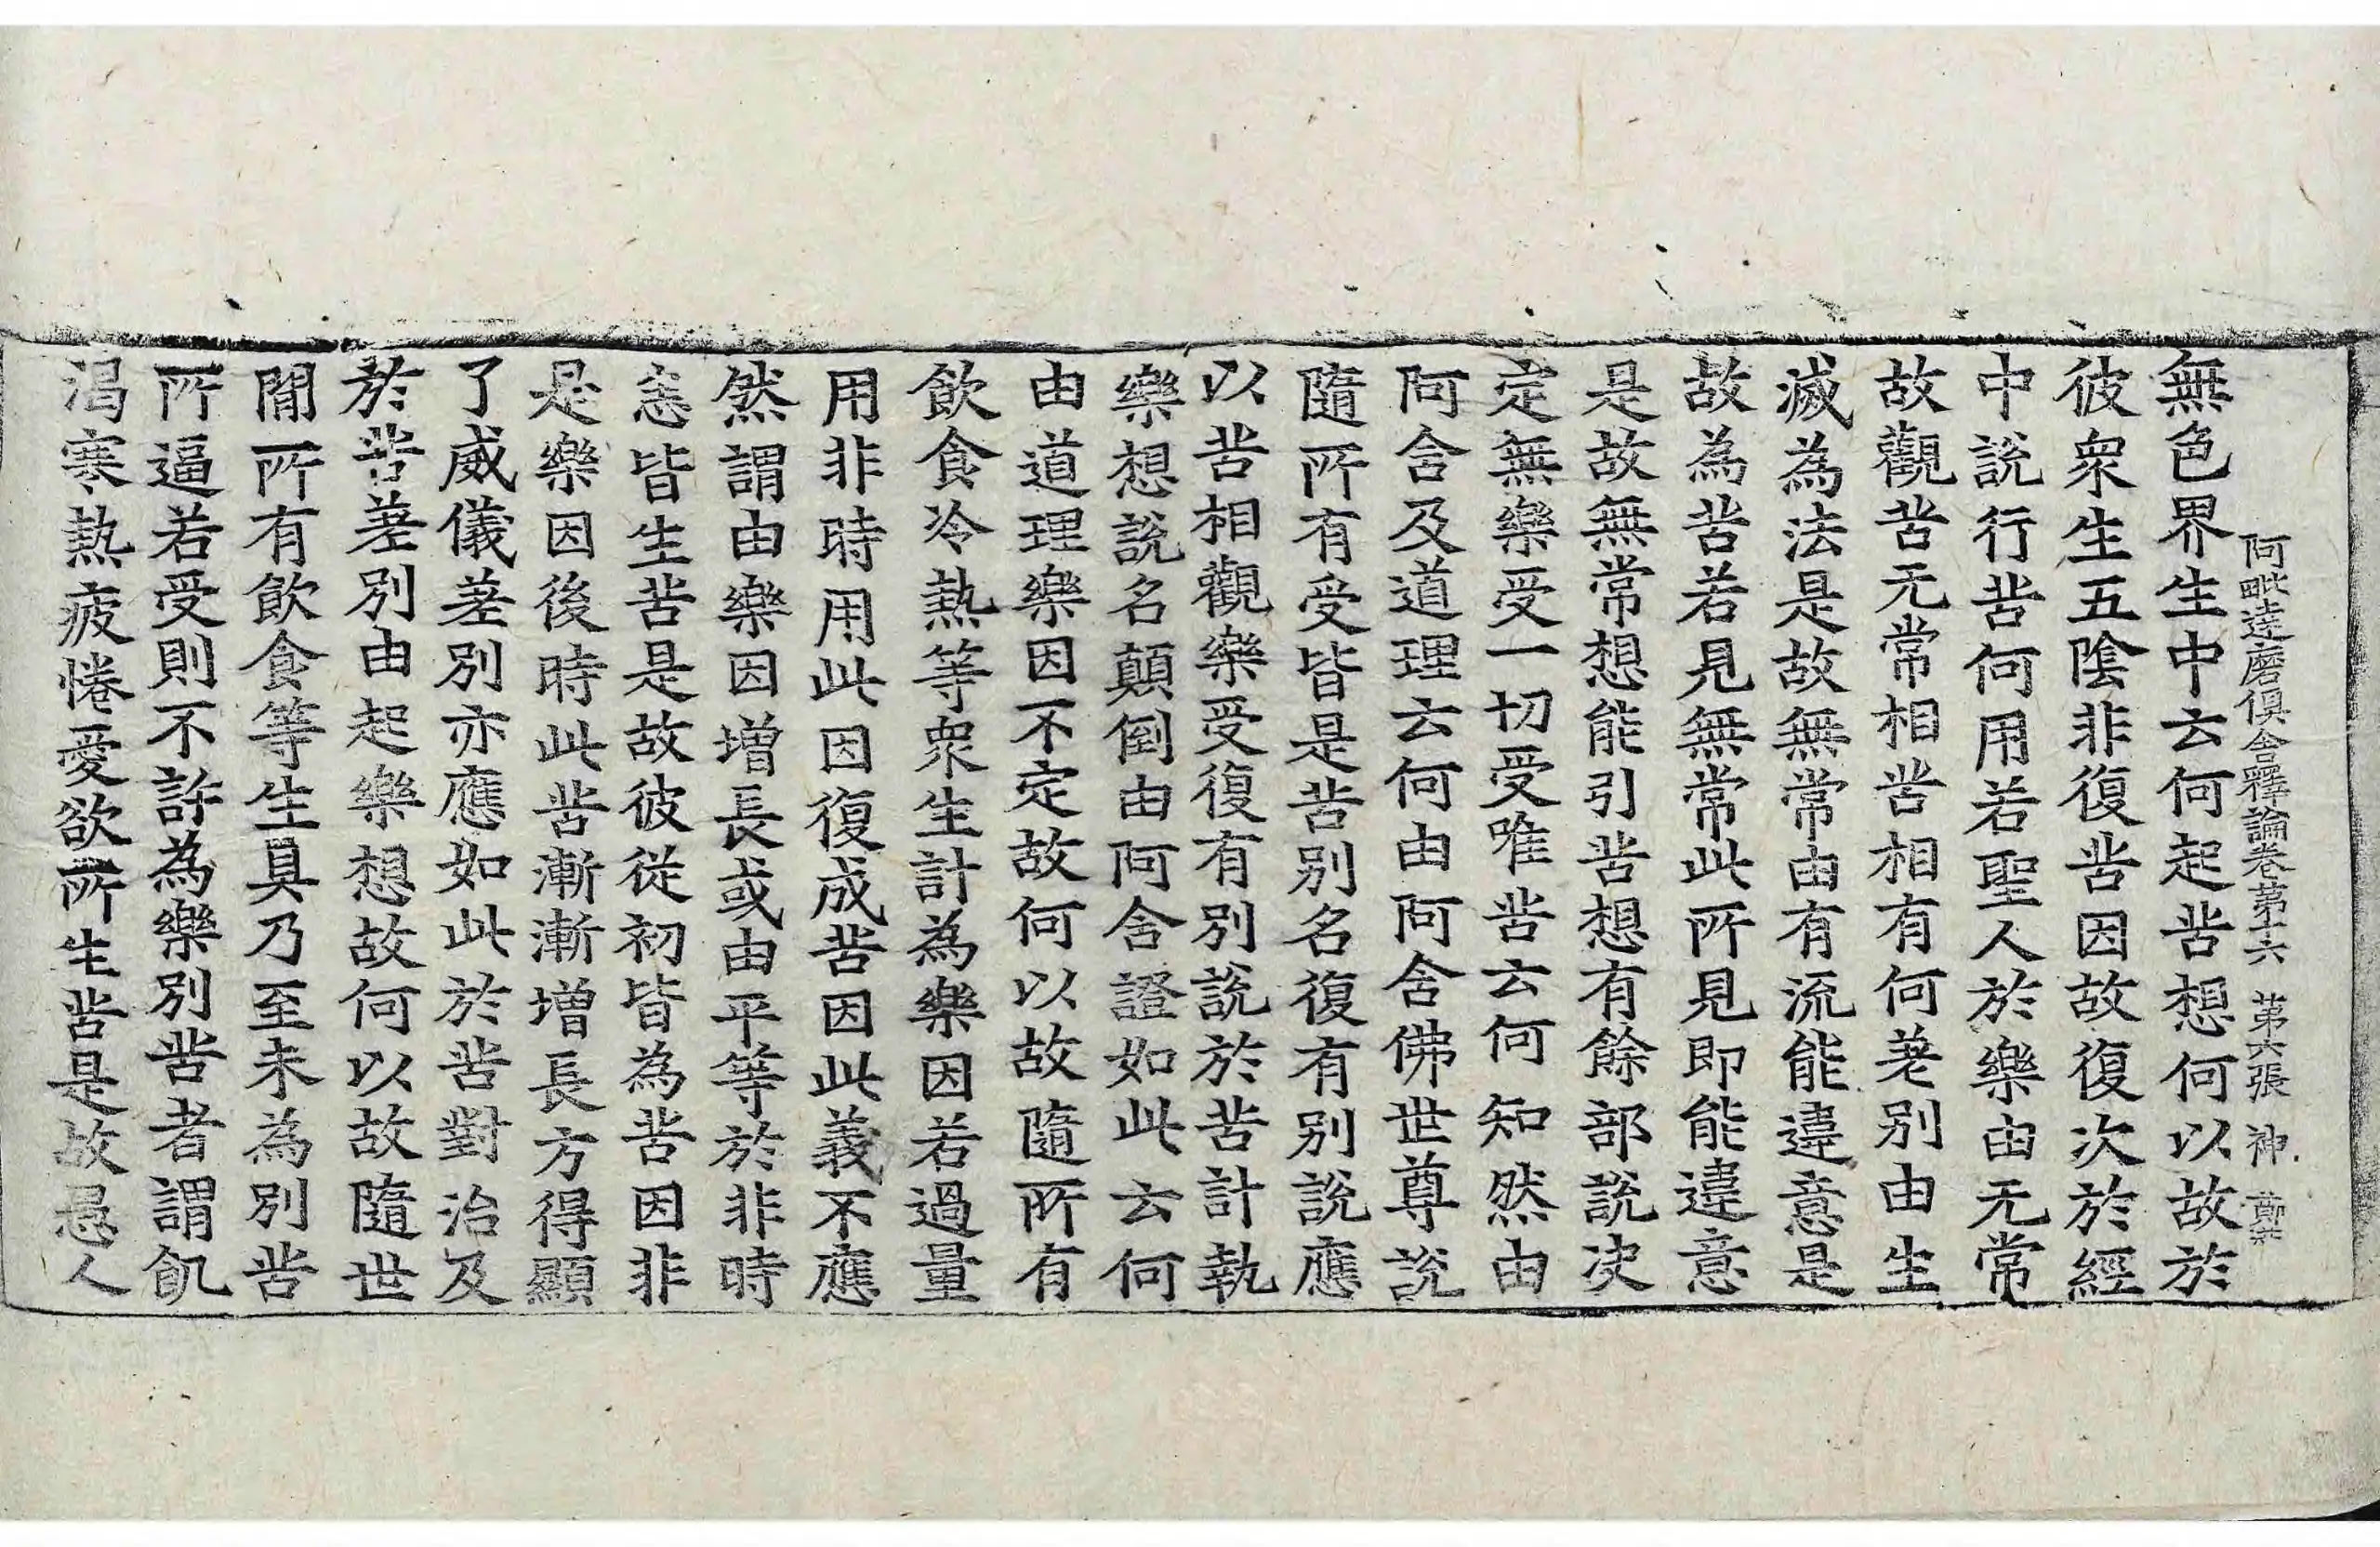 阿毗達磨俱舍釋論卷第十六 第六張 神
無色界生中云何起苦想何以故於
彼衆生五陰非復苦因故復次於經
中說行苦何用若聖人於樂由无常
故觀苦无常相苦相有何差別由生
滅為法是故無常由有流能違意是
故為苦若見無常此所見即能違意
是故無常想能引苦想有餘部說決
定無樂受一切受唯苦云何知然由
阿含及道理云何由阿含佛世尊說
隨所有受皆是苦別名復有別說應
以苦相觀樂受復有別說於苦計執
樂想說名顛倒由阿含證如此云何
由道理樂因不定故何以故隨所有
飲食冷熱等衆生計為樂因若過量
用非時用此因復成苦因此義不應
然謂由樂因增長或由平等於非時
恙皆生苦是故彼從初皆為苦因非
是樂因後時此苦漸漸增長方得顯
了威儀差別亦應如此於苦對治及
於苦差別由起樂想故何以故隨世
間所有飲食等生具乃至未為別苦
所逼若受則不許為樂別苦者謂飢
渴寒熱疲惓愛欲所生苦是故愚人